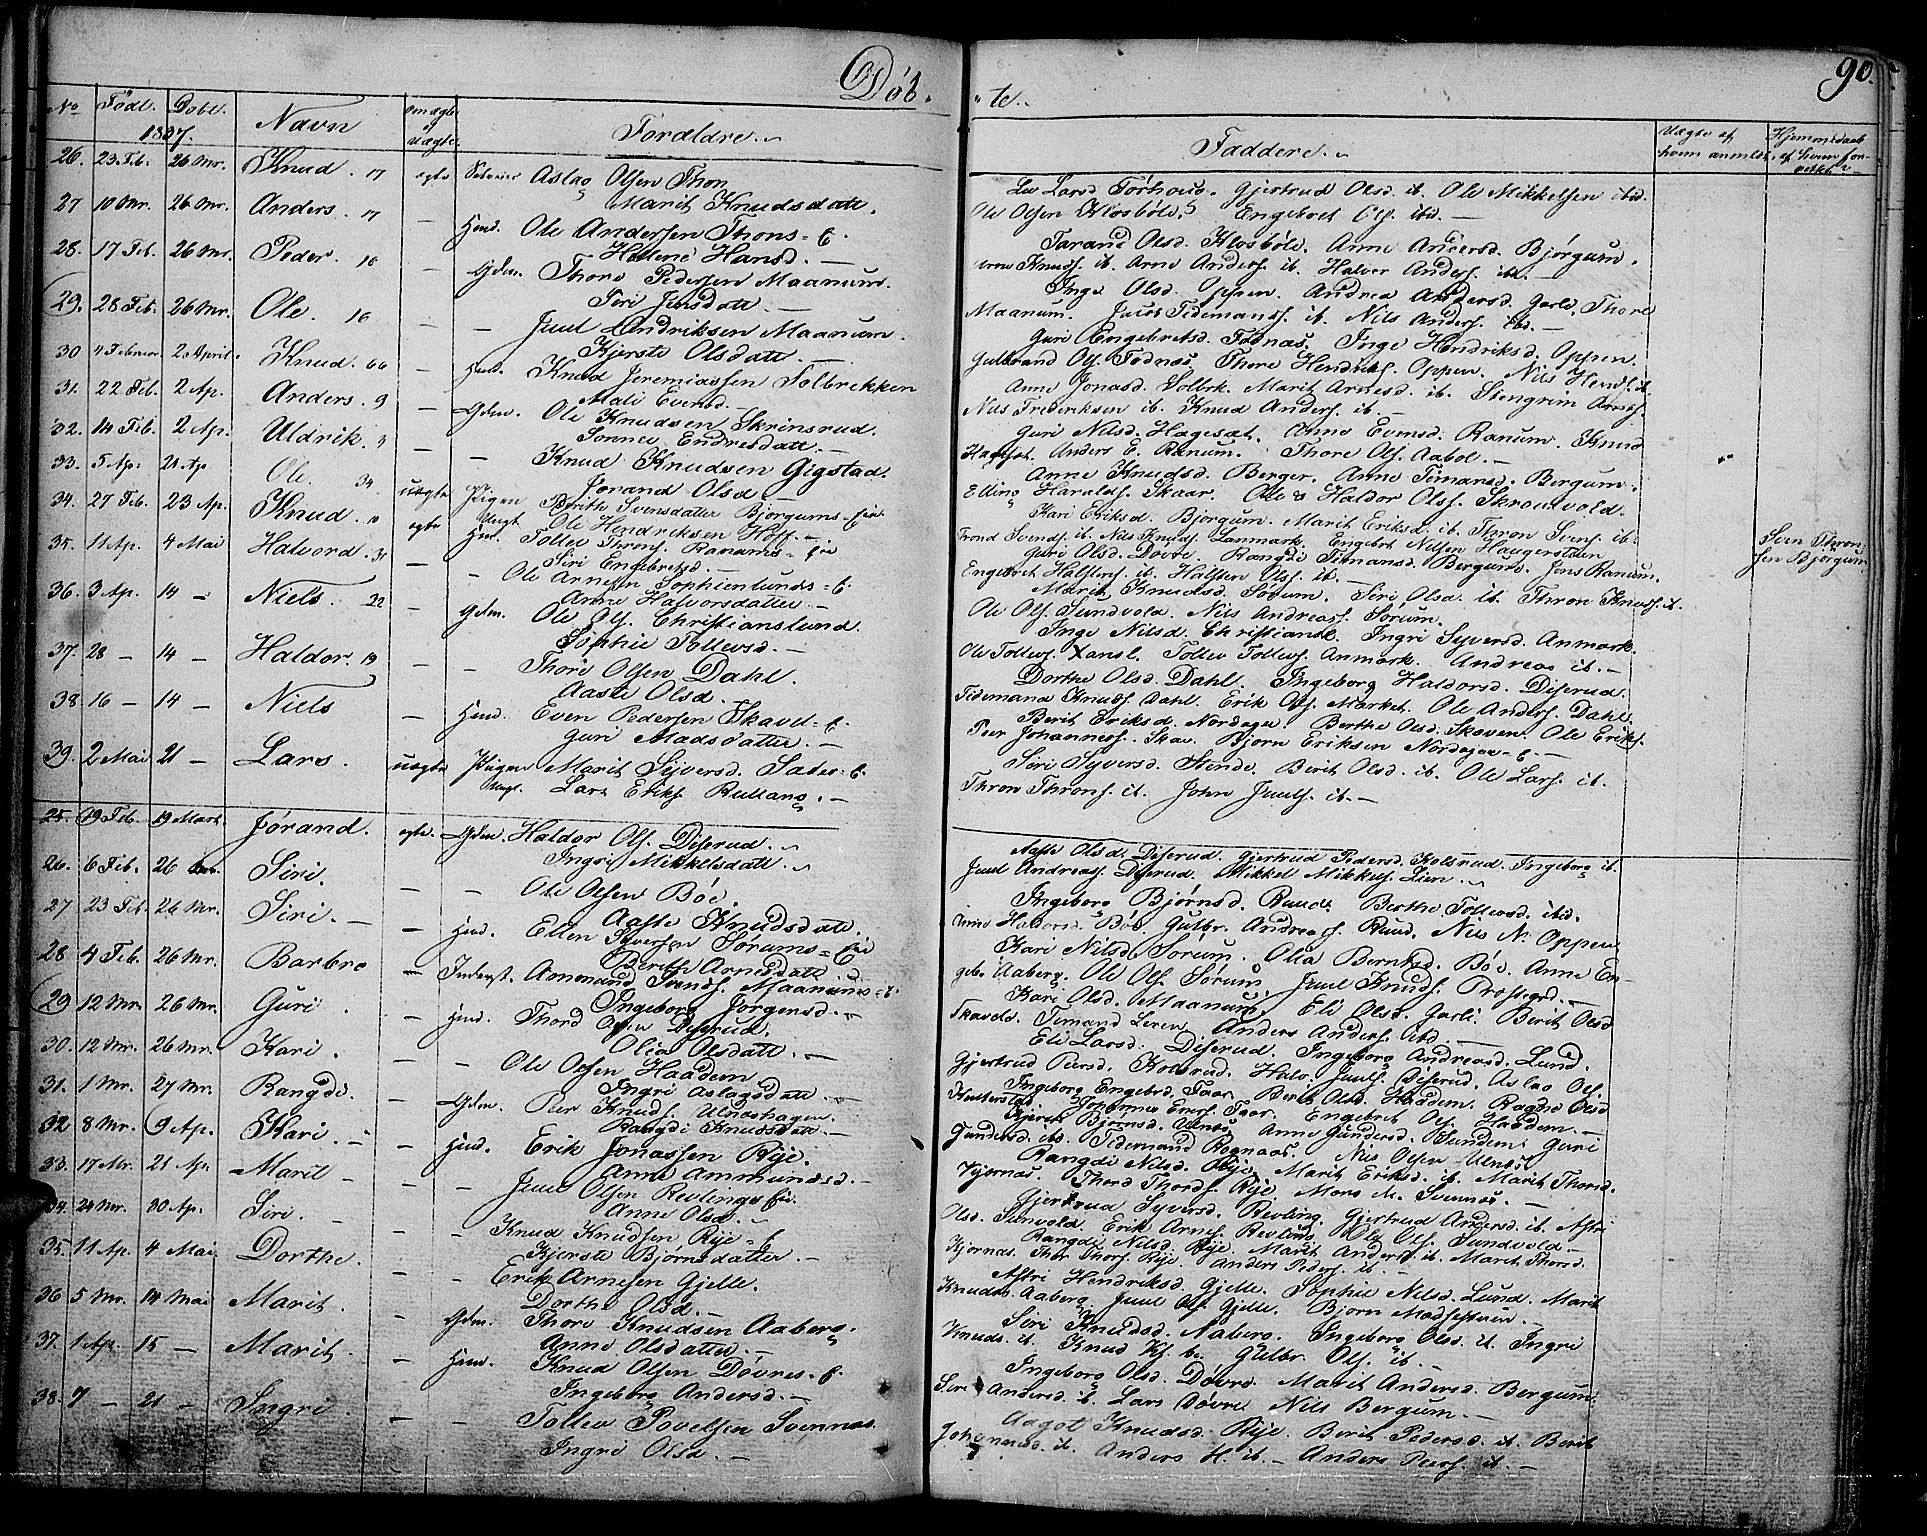 Døb-
-te.
90.
No Födt. Döbt. Navn om ægte ell. uægte Forældre. Faddere. Uægte af hvem anmldt. Hjemmedøbt af hvem forrettet
1837.
26. 23 Feb. 26 Mr. Knud. 17 ægte Aslag Olsen Thon
Marit Knudsdatt.
Lars Torhoug. Gjertrud Olsd. ib. Ole Mikkelsen ibid.
Ole Olsen Klosbøle, Engebret Ols. ibid. —
27 10 Mr. 26 Mr. Anders. 17 — Huusm. Ole Andersen Thons-E.
Hansd. —
Olsd. Klosbøle. Anne Andersd. Bjørgum.
Knuds. ib. Arne Anders. ib. Halvor Anders. ib.
28. 17 Feb. 26 Mr. Peder. 10 — Gdm. Thore Pedersen Maanum.
Siri Jensdatt —
Inge Olsd. Oppen. Andrea Andersd. Garli, Thore
Maanum. Jacob Tidemands. ib. Nils Anders. ibd. —
29. 28 Feb. 26 Mr. Ole. 16 — — Juul Hendriksen Maanum.
Kjersti Olsdatt. —
Guri Engebretsd. Fodnæs. Inge Hendriksd. Oppen.
Gulbrand Ols. Fodnæs Thore Hendriks. Oppen. Nils Hends. ib.
30 4 Februar 2 April. Knud. — Knud Jeremiassen Solbrekken
Mali Evensd. —
Anne Jonasd. Solbrk. Marit Arnesd. ib. Stengrim Arnes.
Nils Frederiksen ib. Knud Anders. ib. —
31. 22 Feb. 2 Ap. Anders. 9 — Gdm. Ole Knudsen Skrinsrud.
Sønnev Endresdatt. —
Guri Nilsd. Hagesæt. Anne Evensd. Ranum. Knud
Hagesæt. Anders E. Ranum. Thore Ols. Aabol. —
32. 14 Feb. 2 Ap. Uldrik. — — Knud Knudsen Gigstad.
Jørand Olsd —
Anne Knudsd. Berger. Anne Timansd. Bergum.
Elling Haralds. Skaar. Ole & Haldor Olss. Skrouvold.
33. 5 Ap. 21 Ap Ole. 34. uægte Pigen Berith Svensdatter Bjørgums-Eie
Ungk. Ole Hendriksen Hoff —
Kari Eriksd. Bjørgum. Marit Eriksd. ib. Thron Svens. ib.
Trond Svends. ib. Nils Knuds. Lanmark. Engebret Nilsen Haugerstuen
34. 27 Feb. 23 Ap. Knud. 10 ægte Huusm. Tollev Throns. Ranums-Eie
Siri Engebretsd. —
Guri Olsd. Dovre. Rangdi Timansd. Bergum. Jens Ranum.
Engebret Halstens. ib. Halsten Ols. ib. —
Sven Thron-
sen Bjørgum
35. 11 Ap. 4 Mai Halvord. 31 — — Ole Arnesen Sophienlunds-E.
Anne Halvorsdatter —
Marit Knudsd. Sørum. Siri Olsd. ib. Thron Knuds. ib.
Ole Ols. Sundvold. Nils Andreass. Sørum.
36. 3 Ap. 14 — Niels. 22 — Gdm. Ole Ols. Christianslund.
Sophie Tollevsd. —
Inge Nilsd. Christiansl. Ingri Syversd. Anmork.
Ole Tollevs. Tollev Tollevs. Anmork. Andreas ib. —
37. 28 — 14 — Haldor. 19 — — Thore Olsen Dahl.
Aaste Olsd. —
Dorthe Olsd. Dahl. Ingeborg Haldorsd. Diserud.
Tidemand Knuds. Dahl. Erik Ols. Market. Ole Anders. Dahl.
38. 16 — 14 — Niels — Huusm. Even Pedersen Skavd-E.
Guri Madsdatter. —
Berit Eriksd. Nordagen. Berthe Olsd. Skaven. Ole Eriks.
Peer Johanness. Skav. Bjørn Eriksen Nordagen-E. —
39. 2 Mai 21 — Lars. uægte Pigen Marit Syversd. Sæter-E.
Ungk. Lars Eriks Rullang. —
Siri Syversd. Stende. Berit Olsd. ib. Ole Lars. ib.
Thron Throns. ib. John Juuls. ib. —
25. 19 Feb. 19 Marts Jørand. ægte. Gdm. Haldor Ols. Diserud. —
Ingri Mikkelsdatt. —
Aaste Olsd. Diserud. Gjertrud Pedersd. Kolsrud. Ingeborg ib.
Juul Andreass. Diserud. Mikkel Mikkels. Lien. —
26. 6 Feb. 26 Mr. Siri. — — Ole Olsen Bøe.
Aaste Knudsdatt.
Ingeborg Bjørnsd. Ruud. Berthe Tollevsd. ibd.
Haldorsd. Bøe Gulbr. Andreass. Ruud. Nils N. Oppen
27 23 Feb. 26 Mr. Siri. — — Huusm. Ellen Syversen Sørums-Eie
Berithe Arnesdatt
Kari Nilsd. Sørum. Olia Berntsd. Bøe. Anne En-
gebr. Aaberg. Ole Ols. Sørum. Juul Knuds. Prestegrd. —
28 4 Feb. 26 Mr. Barbro — Inderst. Ammund Svends. Maanums-E.
Ingeborg Jørgensd. —
Kari Olsd. Maanum. Eli Olsd. Garli. Berit Olsd
Skavdd. Temand Leren. Anders Anders. ibd —
29 12 Mr. 26 Mr. Guri. — Huusm. Thord Olsen Diserud.
Olia Olsdatt. —
Eli Larsd. Diserud. Ingeborg Andreasd. Lund.
Gjertrud Peersd. Kolsrud. Halv. Juuls. Diserud. Aslag Ols.
30. 12 Mr. 26 Mr. Kari. — — Ole Olsen Haadem
Ingri Aslagsdatt. —
Ingeborg Engebrd. Faar. Berit Olsd. Haadem. Ragne Olsd
Johannes Faar. Engebret Ols. Haadem. —
31. 1 Mr. 27 Mr. Rangdi. — Gdm. Peer Knuds. Ulnæshagen.
Rangdi Knudsdatt. —
Bjørnsd. Ulnæs Anne Gundersd. Sundem. Guri
Gundersd. ibd. Tidemand Rognaas. Nils Olsen Ulnæs.
32 8 Mr. 9 Ap. Kari. — — Huusm. Erik Jonassen Rye.
Anne Ammundsd. —
Rangdi Nilsd. Rye. Marit Eriksd. ib. Marit Thorsd.
Kjørnæs. Thord Thords. Rye. Mons M. Svennæs. —
33. 17 Mr. 21 Ap. Marit — — — Juul Olsen Revlings Eie.
Anne Olsd. —
Gjertrud Syversd. Revling. Gjertrud Andersd. ib. Astri
Olsd. Sunvold. Erik Arnes. Revling Ole Ols. Sundvold. —
34. 24 Mr. 30 Ap. Siri. — — — Knud Knudsen Rye-E
Kjersti Bjørnsdatter —
Rangdi Nilsd. Rye. Marit Andersd. ib. Marit Thorsd.
Kjørnæs. Thor Thors. Rye. Anders Peders. ib —
35. 11 Ap. 4 Mai Dorthe. — — Erik Arnesen Gjelle.
Dorthe Olsd. —
Astri Hendriksd. Gjelle. Sophie Nilsd. Lund. Marit
Knudsd. Aaberg. Juul Ols. Gjelle. Bjørn Madsstuen. —
36 5 Mr. 14 Mai Marit. — Gdm. Thore Knudsen Aaberg.
Anne Olsdatter. —
Siri Knudsd. Aaberg. Ingeborg Olsd. ib. Ingri
Knuds. ib. Knud Ks. ib. Gulbr. Ols. ib. —
37. 1 Ap. 15 — Marit. — Huusm. Knud Olsen Dovres-E.
Ingeborg Andersd. —
Ingeborg Olsd. Dovre. Marit Andersd. Bergum.
Siri Andersd. ib. Lars Dovre Nils Bergum. —
38. 7 — 21 — Ingri. — — Tollev Povelsen Svennæs.
Ingri Olsd. —
Aagot Knudsd. Rye. Berit Pedersd. ib. Berit
Johannesd. ib. Anders H. ib. — Anders Peers. ib. —